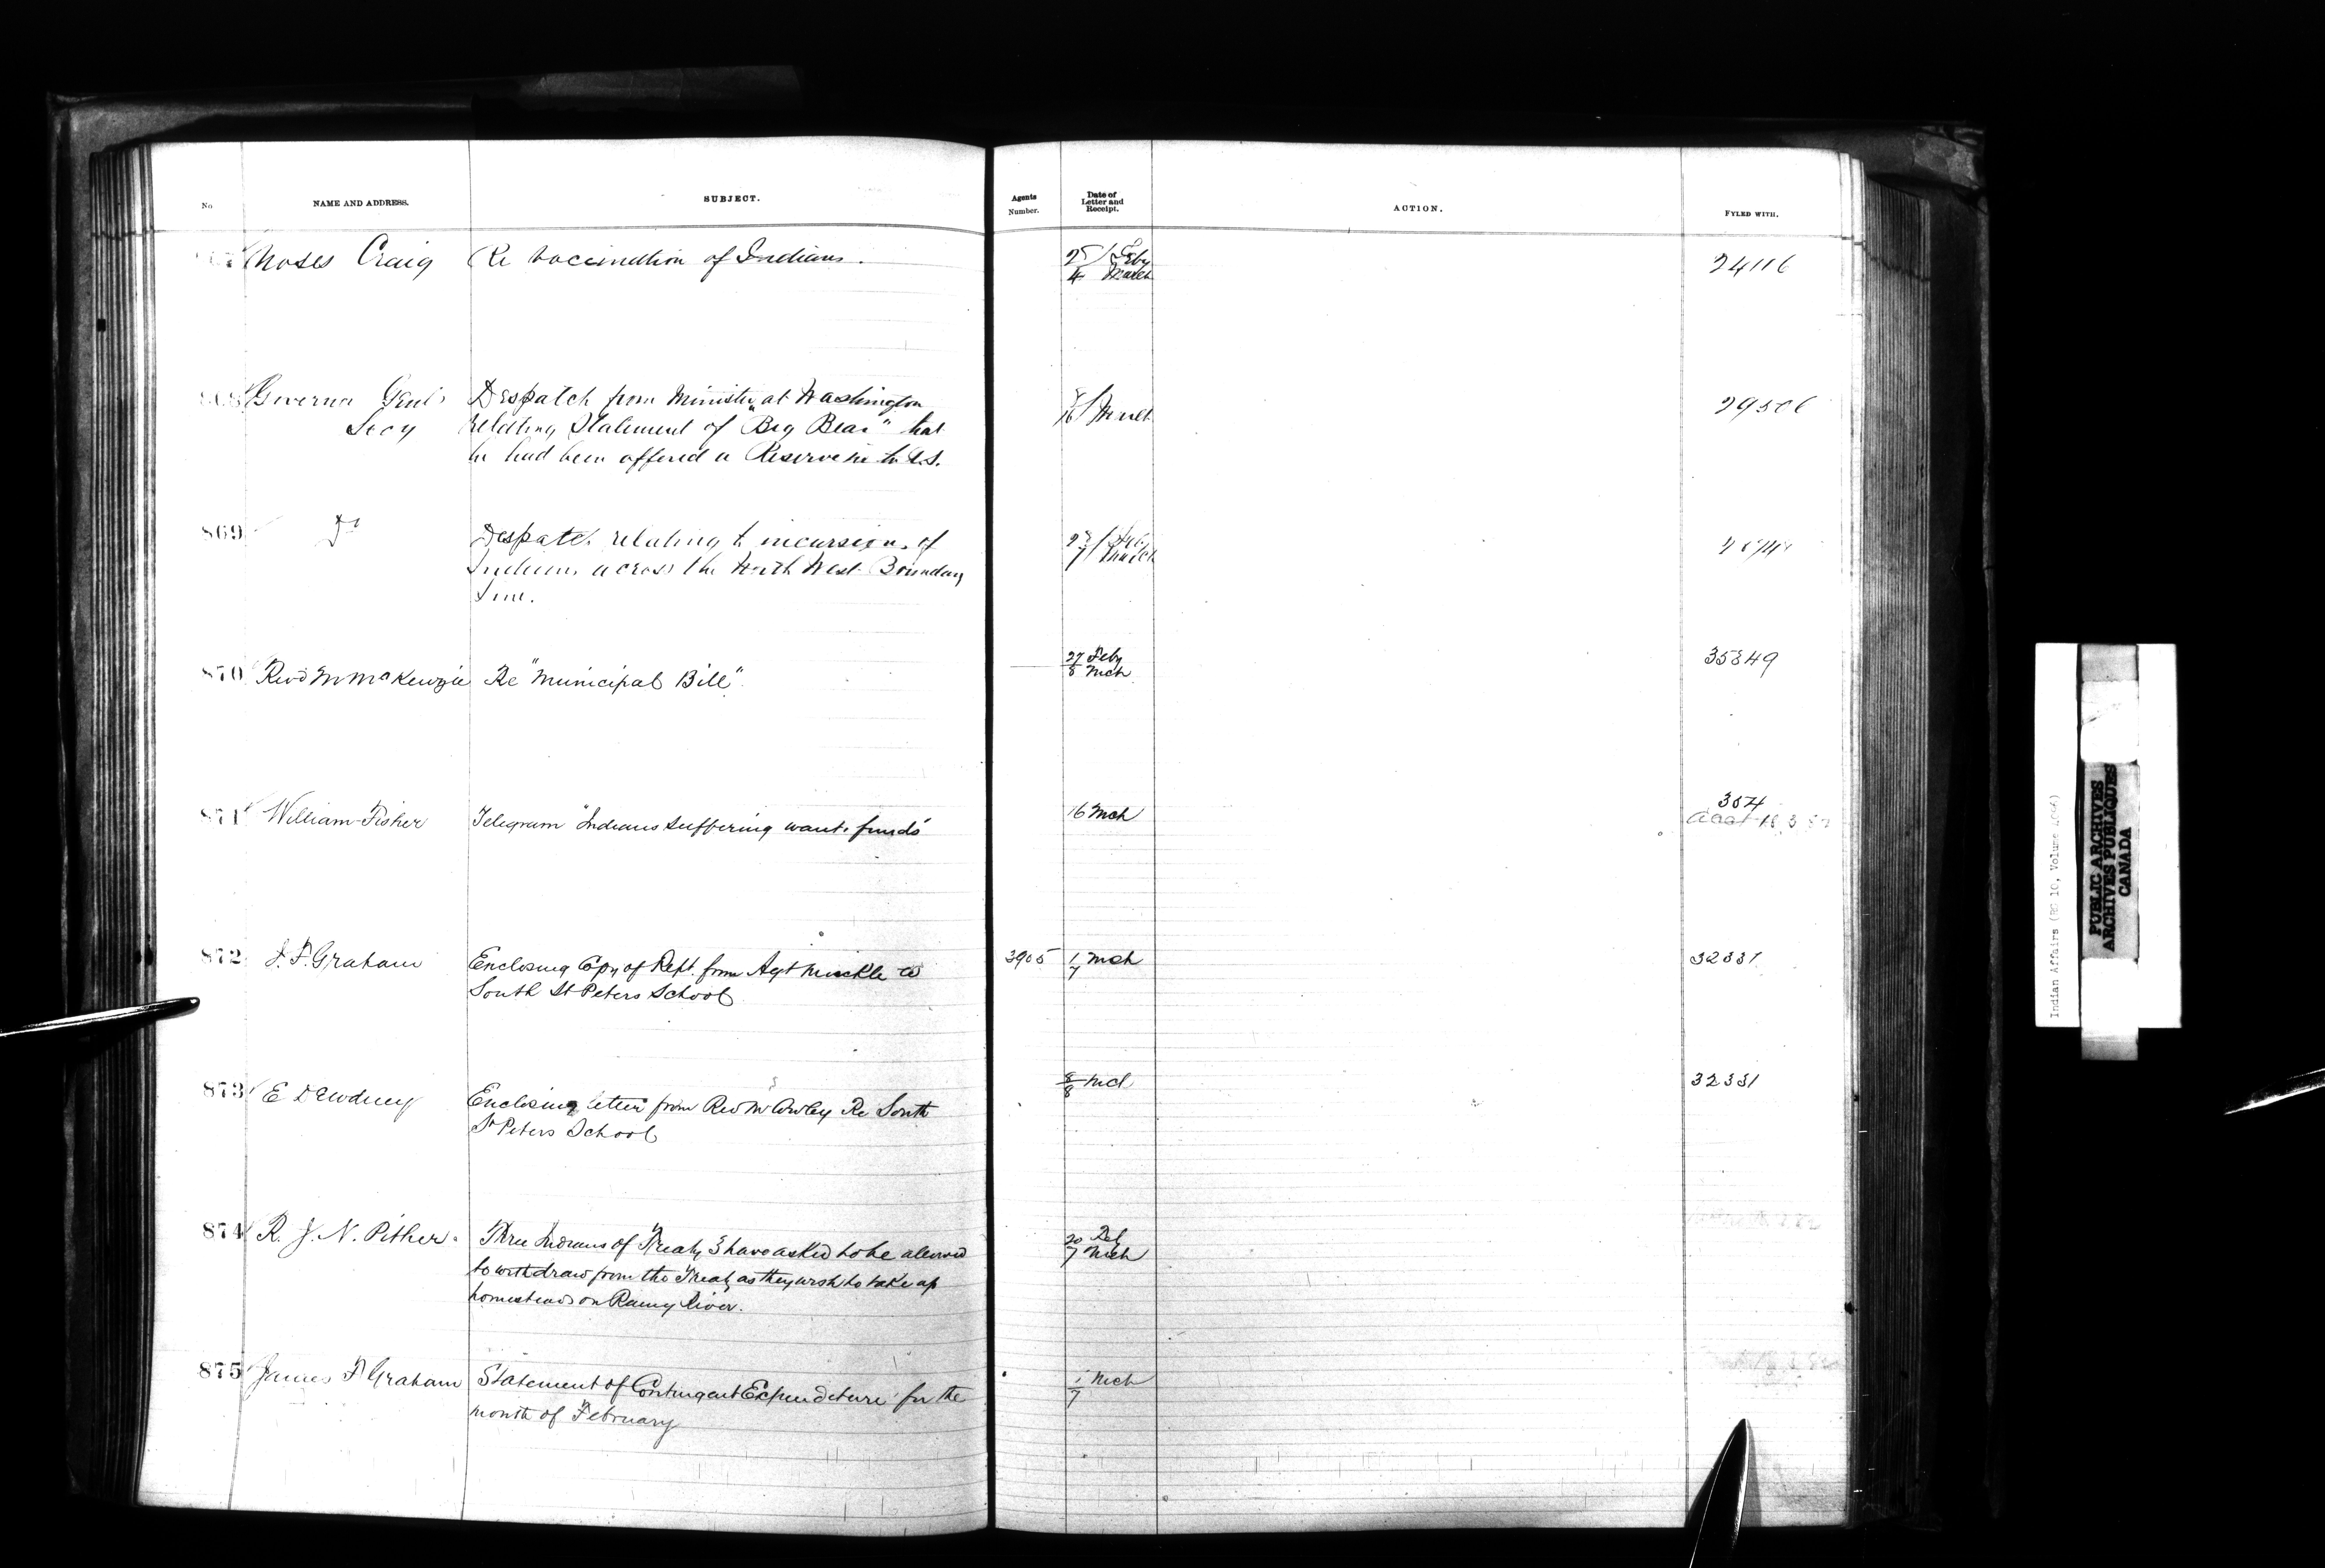 No
NAME AND ADDRESS.
SUBJECT.
Agents
Number.
Date of
Letter and
Receipt.
ACTION.
FYLED WITH.
Moses Craig
Re Vaccination of Indians.
25 / Feby
4 March
24116
868
Governor Genl's
Secy
Despatch from Minister at Washington
relating Statement of "Big Bear" that
he had been offered a Reserve in the U.S.
March
869
Do
Despatch relating to incursions of
Indians across the North West Boundary
Line.
March
870
Revd M McKenzie
Re "Municipal Bill"
27 Feby
8 Mch
35849
871
William Fisher
Telegram "Indians suffering want funds"
16 Mch
304
872
J. F. Graham
Enclosing Copy of Rept. from Agt Muckle re
South St Peters School
3905
1 Mch
7
32331
873
E Dewdney
Enclosing letter from Rev Mr Cowley Re South
St Peters School
8 Mch
8
32331
874
R. J. N. Pither.
Three Indians of Treaty 3 have asked to be allowed
to withdraw from the Treaty as they wish to take up
homesteads on Rainy River.
20 Feb
7 Mch
875
James F Graham
Statement of Contingent Expenditure for the
month of February
1 Mch
7
Indian Affairs (RG 10, Volume
PUBLIC ARCHIVES
ARCHIVES PUBLIQUES
CANADA